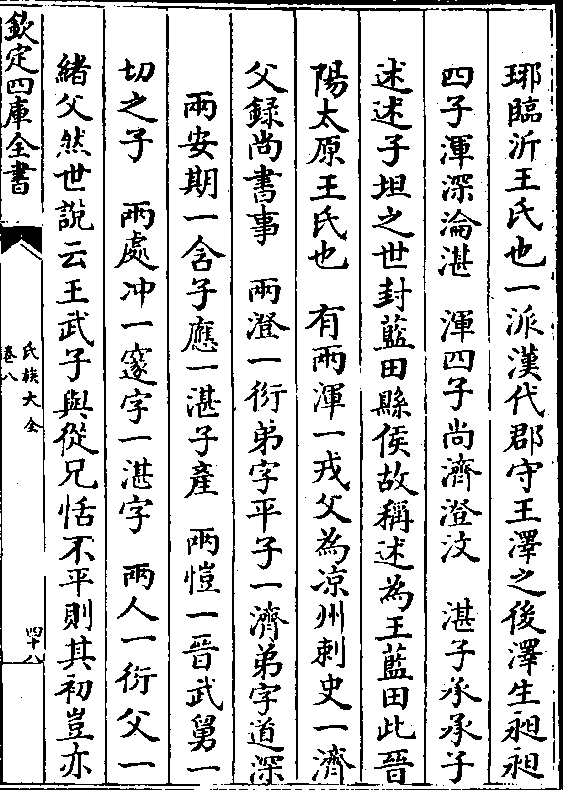 琊臨沂王氏也一派漢代郡守王澤之後澤生昶昶
四子渾深淪湛　渾四子尚濟澄汶　湛子承承子
述述子坦之世封藍田縣侯故稱述為王藍田此晉
陽太原王氏也　有兩渾一戎父為凉州刺史一濟
父録尚書事　兩澄一衍弟字平子一濟弟字道深
兩安期一含子應一湛子產　兩愷一晉武舅一
切之子　兩處冲一邃字一湛字　兩人一衍父一
緒父然世說云王武子與從兄恬不平則其初豈亦
欽定四庫全書
氏族大全
卷八
四十八